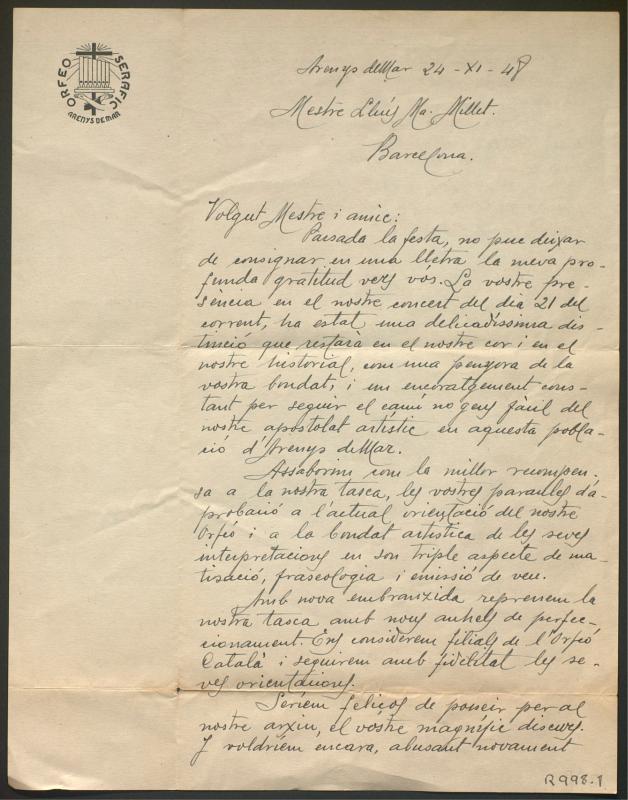 ORFEO SERAFIC
ARENYS DE MAR
Arenys deMar 24-XI-48
Mestre Lluís Ma. Millet.
Barcelona.
Volgut Mestre i amic:
Passada la festa, no puc deixar
de consignar en una lletra la meva pro-
funda gratitud vers vós. La vostre pre-
sència en el nostre concert del dia 21 del
corrent, ha estat una delicadíssima dis-
tinció que restarà en el nostre cor i en el
nostre historial, com una penyora de la
vostra bondat, i un encoratgement cons-
tant per seguir el camí no gens fàcil del
nostre apostolat artístic en aquesta pobla-
ció d'Arenys deMar.
Assaborim com la millor recompen-
sa a la nostra tasca, les vostres paraules d'a-
probació a l'actual orientació del nostre
Orfeó i a la bondat artistica de les seves
interpretacions en son triple aspecte de ma-
tisació, fraseologia i emissió de veu.
Amb nova embranzida reprenem la
nostra tasca amb nous anhels de perfec-
cionament. Ens considerem filials de l'Orfeó
Català i seguirem amb fidelitat les se-
ves orientacions.
Seríem feliços de posseir per al
nostre arxiu, el vostre magnífic discurs.
I voldríem encara, abusant novament
R 998.1